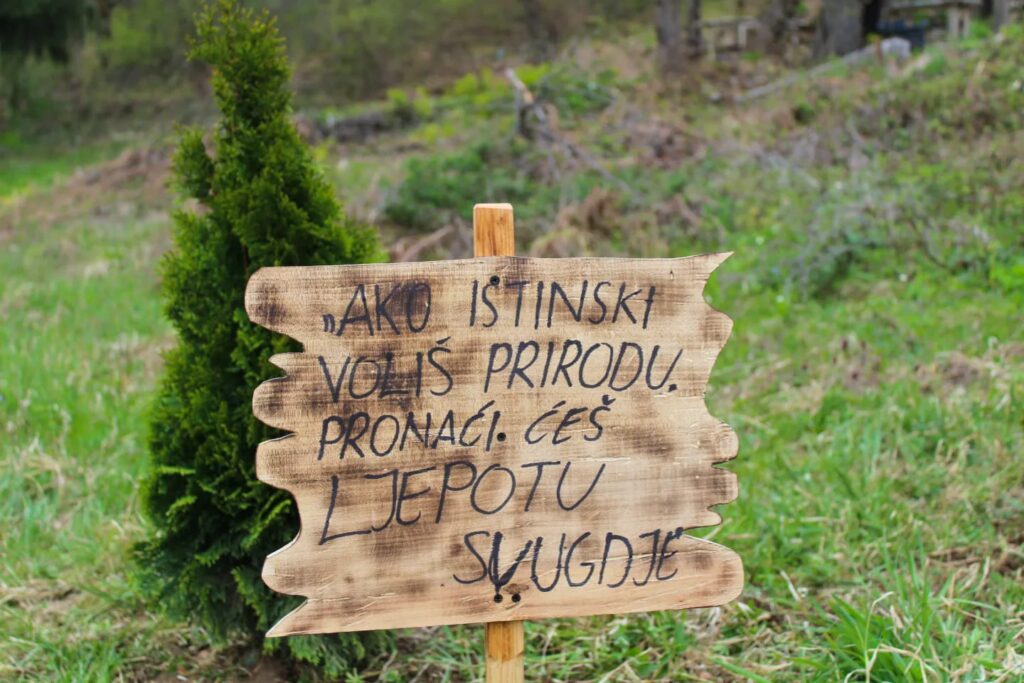 „AKO ISTINSKI
VOLIŠ PRIRODU,
PRONAĆI ĆEŠ
LJEPOTU
SVUGDJE“